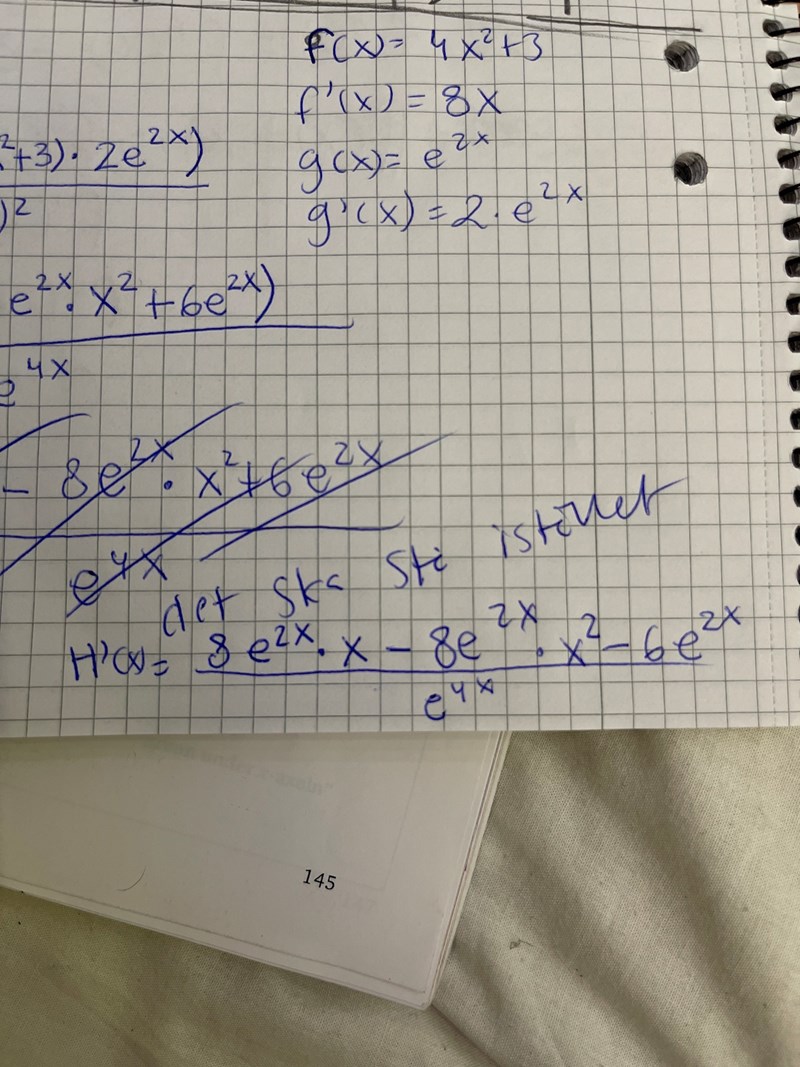 F(x) = 4x²+3
f'(x) = 8x
²+3) · 2e^{2x})
g(x) = e^{2x}
)²
g'(x) = 2 · e^{2x}
e^{2x} · x² + 6e^{2x})
e^{4x}
- 8e^{2x} · x² + 6e^{2x}
e^{4x}
det ska stå istället
H'(x) = 8e^{2x} · x - 8e^{2x} · x² - 6e^{2x}
e^{4x}
145